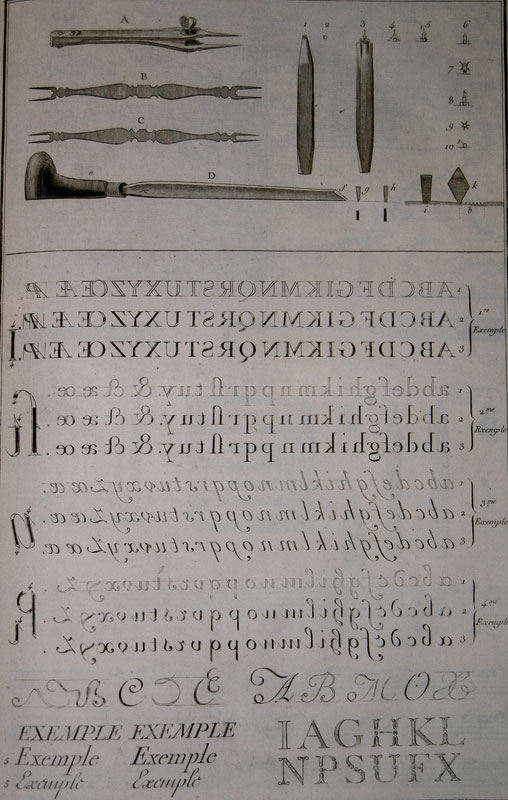 A
B
C
D
1 2 3 4 5 6
7
8
9
10
e f g h i k b
ABCDEFGIKMNQRSTUXYZŒÆ 1
ABCDEFGIKMNQRSTUXYZŒÆ 2
ABCDEFGIKMNQRSTUXYZŒÆ 3
1.re Exemple
abdefghikmnpqrſtuy. & æ œ. 1
abdefghikmnpqrſtuy. & æ œ. 2
abdefghikmnpqrſtuy. & æ œ. 3
2.me Exemple
abcdefghiklmnopqrstuvxyz æ œ. 1
abcdefghiklmnopqrstuvxyz æ œ. 2
abcdefghiklmnopqrstuvxyz æ œ. 3
3.me Exemple
abcdefghiklmnopqrstuvxyz. 1
abcdefghiklmnopqrstuvxyz. 2
abcdefghiklmnopqrstuvxyz. 3
4.me Exemple
B C D E A B M O X
EXEMPLE EXEMPLE
5 Exemple Exemple
5 Exemple Exemple
IAGHKL
NPSUFX